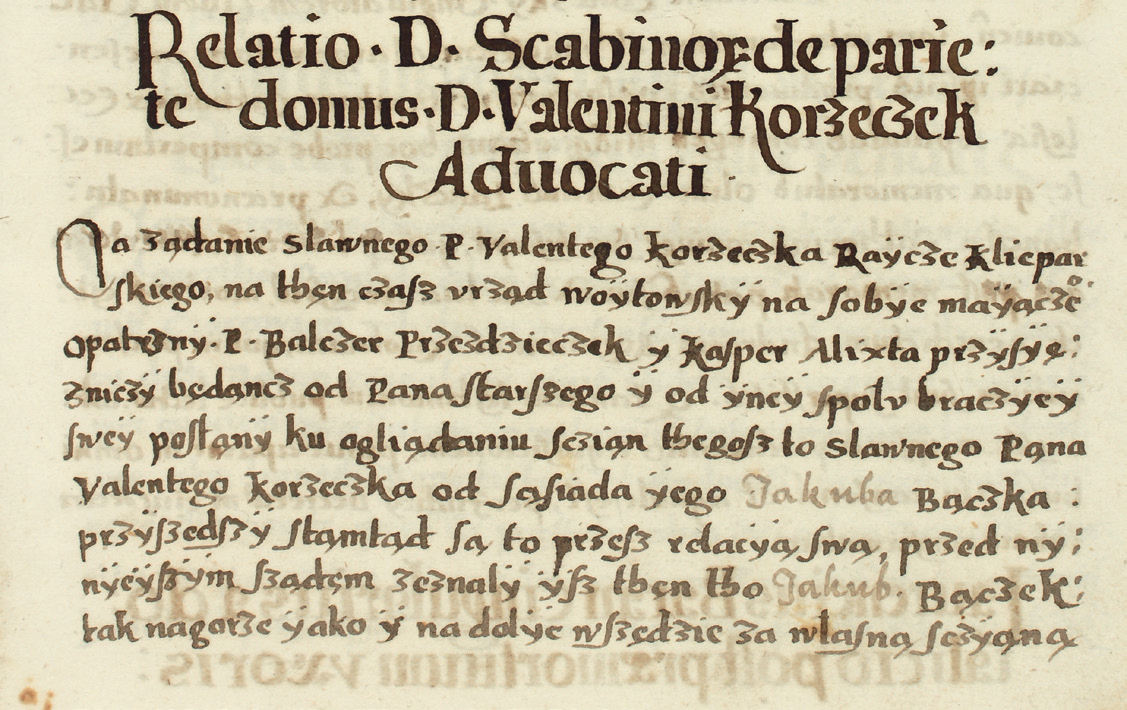 Relatio · D · Scabinoꝝ de parie:
te domus · D · Valentini Korzeczek
Aduocati
Na ządanie slawnego P · Valentego Korzeczka Raÿcze Kliepar
skiego, na then czasz vrząd woÿtowskÿ na sobÿe maÿączeº
opatrznÿ · P · Balczer Przezdzieczek ÿ Kasper Alixta przÿsÿę:
zniczÿ będancz od Pana starszego ÿ od ÿneÿ spolv braczÿeÿ
sweÿ posłanÿ ku oglią̨daniu sczian thegosz to slawnego Pana
Valentego Korzeczka od sąsiada ÿego Jakuba Bączka :
przÿszedszÿ stamtąd są to przesz relacÿą swą, przed nÿ:
nÿeÿszÿm sządem zeznalÿ ÿsz then tho Jakub · Bączek:
tak nagorze ÿako ÿ na dolÿe wszędzie za własną sczÿaną